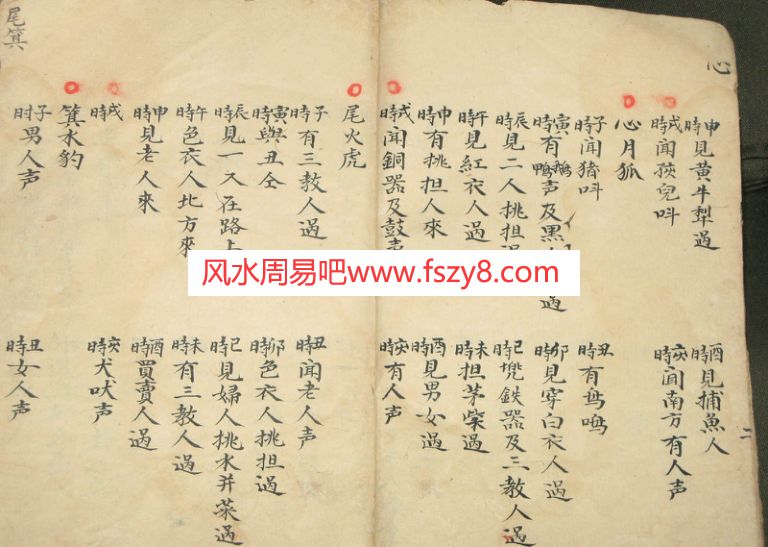 心
二
申時見黃牛犁過 酉時見捕魚人
戌時聞孩兒呌 亥時聞南方有人声
心月狐
子時聞猪呌 丑時有鳥鳴
寅時有鵝鴨声及黑 過 卯時見穿白衣人過
辰時見二人挑担 巳時 鉄器及三教人過
午時見紅衣人過 未時担茅柴過
申時有挑担人來 酉時見男女過
戌時聞銅器及鼓 亥時有人声
尾火虎
子時有三教人過 丑時闻老人声
寅時與丑仝 卯時色衣人挑担過
辰時見一人在路上 巳時見婦人挑水并菜過
午時色衣人北方來 未時有三教人過
申時見老人來 酉時買賣人過
戌時 亥時犬吠声
箕水豹
子时男人声 丑時女人声
尾箕
风水周易吧www.fszy8.com